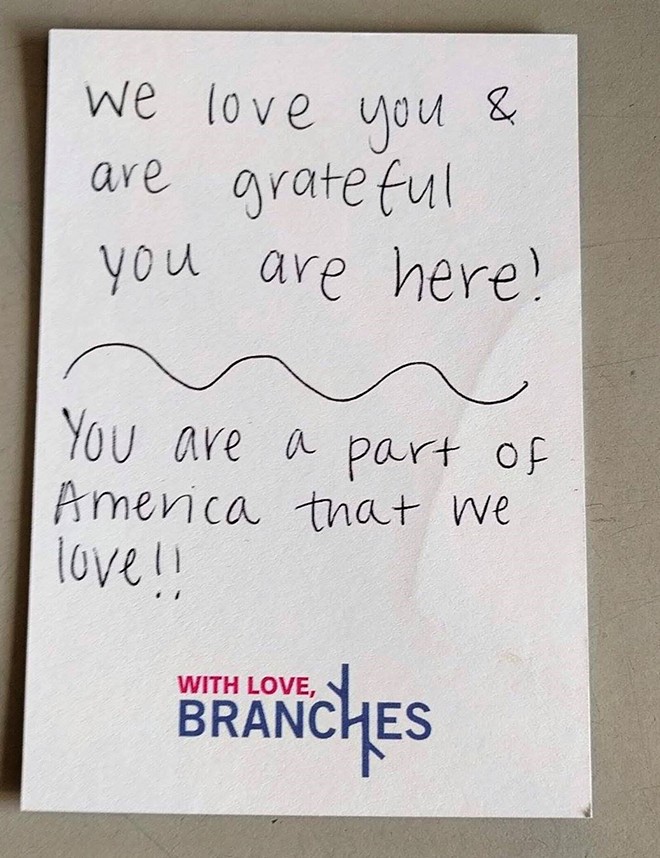 We love you &
are grateful
you are here!
You are a part of
America that we
love!!
WITH LOVE,
BRANCHES